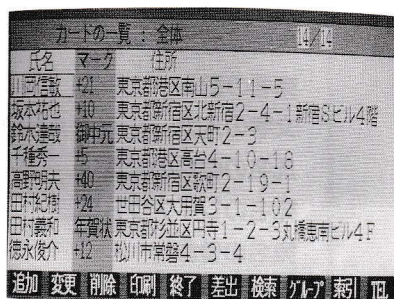 カードの一覧 : 全体 14/14
氏名 マーク 住所
山岡信敏 +21 東京都港区南山5-11-5
坂本祐也 +10 東京都新宿区北新宿2-4-1新宿Sビル4階
鈴木達哉 御中元 東京都新宿区天町2-3
千種秀一 +5 東京都港区高台4-10-18
高野明夫 +40 東京都新宿区歌町2-19-1
田村紀樹 +24 世田谷区大用賀3-1-102
田村義和 年賀状 東京都杉並区円寺1-2-3丸橋恵南ビル4F
徳永俊介 +12 松川市常磐4-3-4
追加 変更 削除 印刷 終了 差出 検索 グループ 索引 TEL